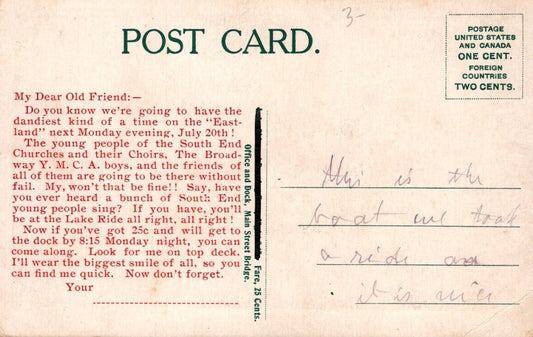 3-
POST CARD.
POSTAGE
UNITED STATES
AND CANADA
ONE CENT.
FOREIGN
COUNTRIES
TWO CENTS.
My Dear Old Friend:—
Do you know we're going to have the
dandiest kind of a time on the "East-
land" next Monday evening, July 20th!
The young people of the South End
Churches and their Choirs, The Broad-
way Y. M. C. A. boys, and the friends of
all of them are going to be there without
fail. My, won't that be fine!! Say, have
you ever heard a bunch of South End
young people sing? If you have, you'll
be at the Lake Ride all right, all right!
Now if you've got 25c and will get to
the dock by 8:15 Monday night, you can
come along. Look for me on top deck.
I'll wear the biggest smile of all, so you
can find me quick. Now don't forget.
Your
Office and Dock, Main Street Bridge.
Fare, 25 Cents.
this is the
boat we took
a ride on
it is nice